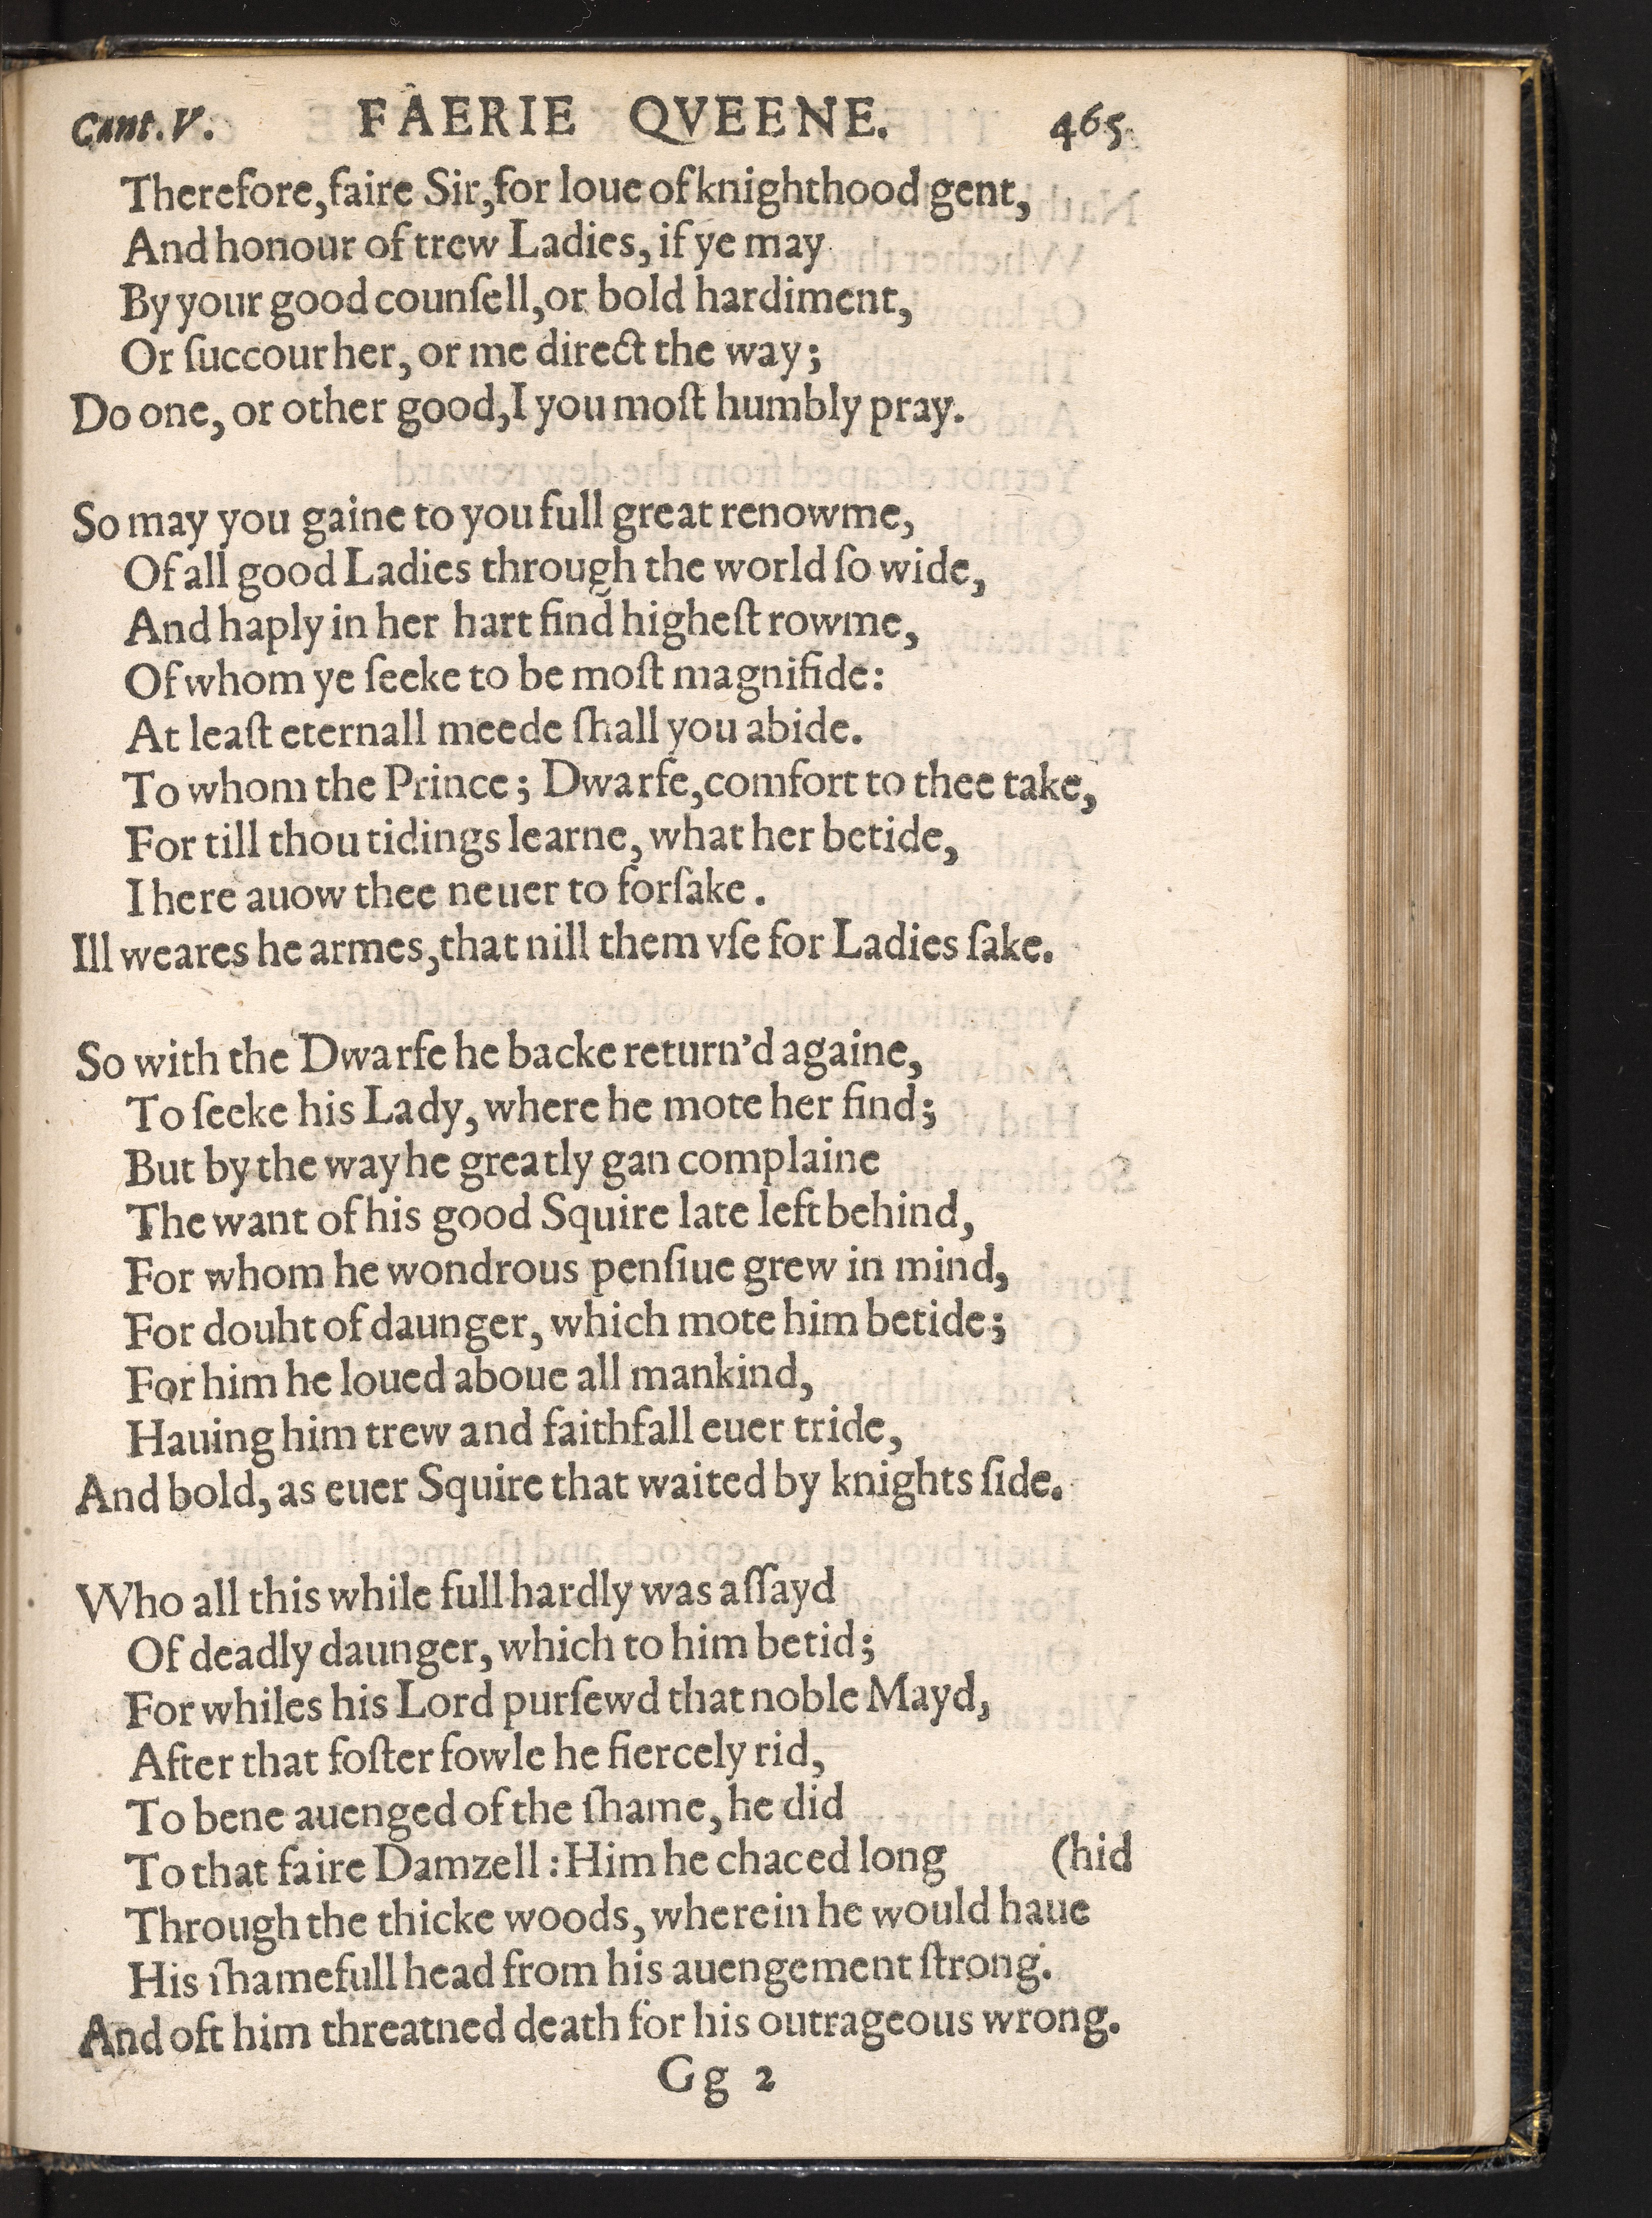 Cant. V. FAERIE QVEENE. 465
Therefore, faire Sir, for loue of knighthood gent,
And honour of trew Ladies, if ye may
By your good counſell, or bold hardiment,
Or ſuccour her, or me direct the way;
Do one, or other good, I you moſt humbly pray.
So may you gaine to you full great renowme,
Of all good Ladies through the world ſo wide,
And haply in her hart find higheſt rowme,
Of whom ye ſeeke to be moſt magnifide:
At leaſt eternall meede ſhall you abide.
To whom the Prince; Dwarfe, comfort to thee take,
For till thou tidings learne, what her betide,
I here auow thee neuer to forſake.
Ill weares he armes, that nill them vſe for Ladies ſake.
So with the Dwarfe he backe return'd againe,
To ſeeke his Lady, where he mote her find;
But by the way he greatly gan complaine
The want of his good Squire late left behind,
For whom he wondrous penſiue grew in mind,
For douht of daunger, which mote him betide;
For him he loued aboue all mankind,
Hauing him trew and faithfall euer tride,
And bold, as euer Squire that waited by knights ſide.
Who all this while full hardly was aſſayd
Of deadly daunger, which to him betid;
For whiles his Lord purſewd that noble Mayd,
After that foſter fowle he fiercely rid,
To bene auenged of the ſhame, he did
To that faire Damzell: Him he chaced long (hid
Through the thicke woods, wherein he would haue
His ſhamefull head from his auengement ſtrong.
And oft him threatned death for his outrageous wrong.
Gg 2